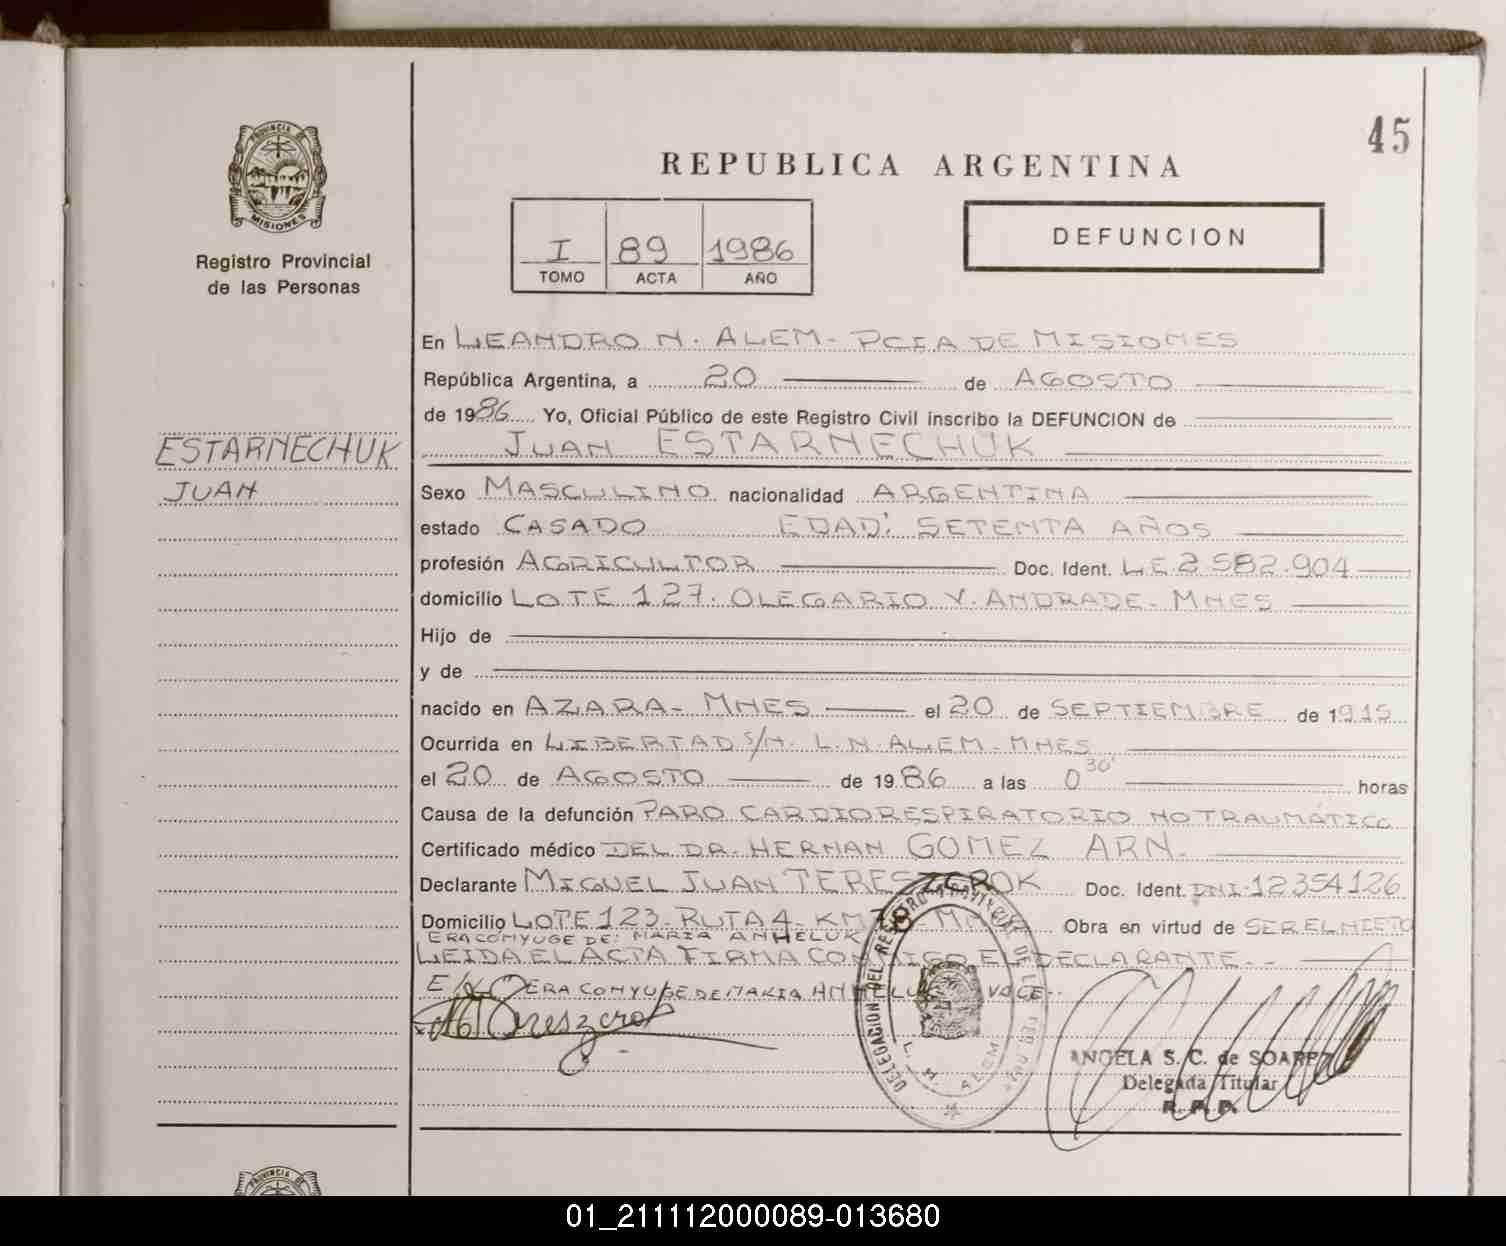 45
PROVINCIA DE
MISIONES
Registro Provincial
de las Personas
REPUBLICA ARGENTINA
I 89 1986
TOMO ACTA AÑO
DEFUNCION
ESTARNECHUK
JUAN
En LEANDRO N. ALEM - PCIA DE MISIONES
República Argentina, a 20 de AGOSTO
de 1986 Yo, Oficial Público de este Registro Civil inscribo la DEFUNCION de
JUAN ESTARNECHUK
Sexo MASCULINO nacionalidad ARGENTINA
estado CASADO EDAD: SETENTA AÑOS
profesión AGRICULTOR Doc. Ident. L.E. 2.582.904
domicilio LOTE 127. OLEGARIO V. ANDRADE - MNES
Hijo de
y de
nacido en AZARA - MNES el 20 de SEPTIEMBRE de 1915
Ocurrida en LIBERTAD S/N. L.N. ALEM - MNES
el 20 de AGOSTO de 1986 a las 0 30' horas
Causa de la defunción PARO CARDIORESPIRATORIO NO TRAUMÁTICO
Certificado médico DEL DR. HERNAN GOMEZ ARN.
Declarante MIGUEL JUAN TERESZCROK Doc. Ident. DNI. 12354126
Domicilio LOTE 123 - RUTA 4 - KM Obra en virtud de SER EL NIETO
ERA CONYUGE DE: MARIA ANHELUK
LEIDA EL ACTA FIRMA CONMIGO EL DECLARANTE. -
E/L ERA CONYUGE DE MARIA ANHELUK VALE.
DELEGACION DEL REGISTRO PROVINCIAL DE LAS PERSONAS
L. N. ALEM
ANGELA S. C. de SOAREZ
Delegada Titular
R. P. P.
PROVINCIA
01_211112000089-013680